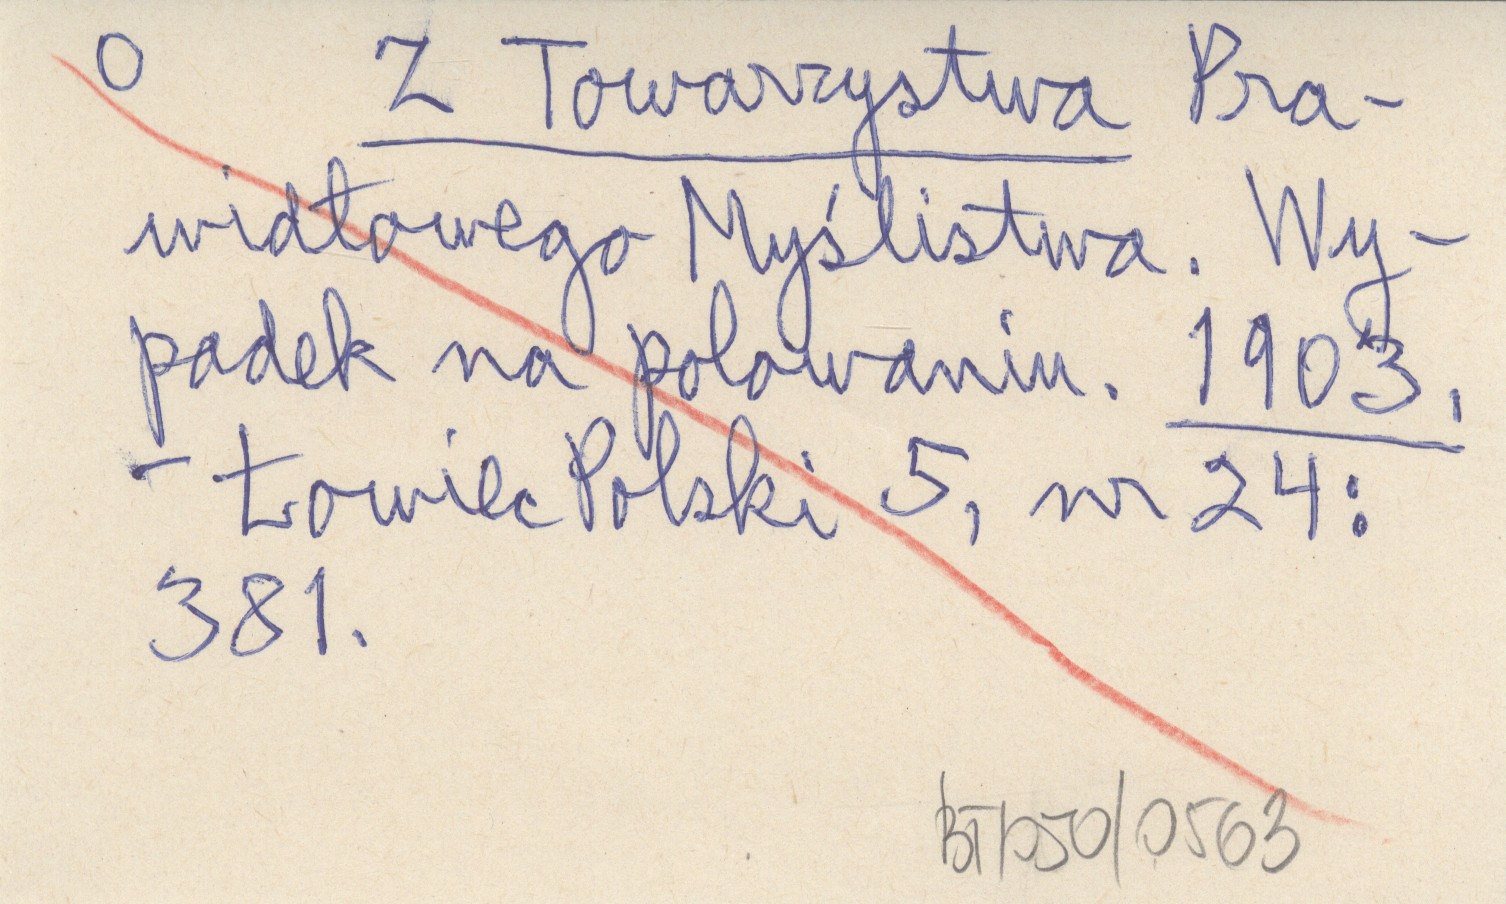 O Z Towarzystwa Pra-
widłowego Myślistwa. Wy-
padek na polowaniu. 1903.
- Łowiec Polski 5, nr 24:
381.
BT/050/0563